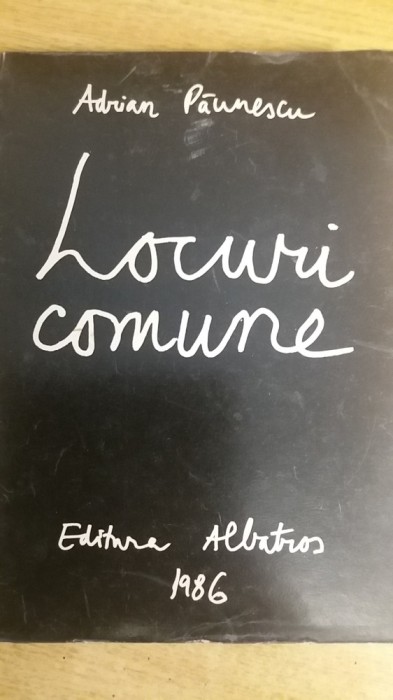 Adrian Păunescu
Locuri
comune
Editura Albatros
1986